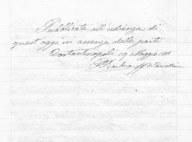 Pubblicata all'udienza di
quest'oggi in assenza delle parti
Costantinopoli 29 Maggio